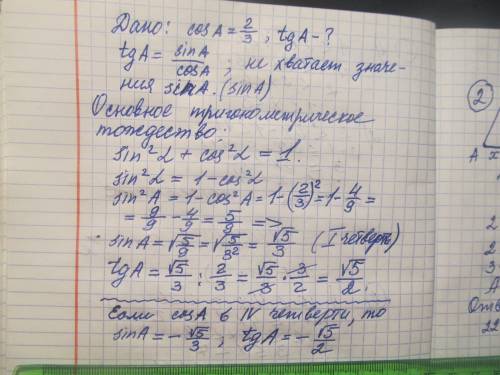 Дано: cosA = 2/3, tgA - ?
tgA = sinA/cosA, не хватает значе-
ния sinA. (sinA)
Основное тригонометрическое
тождество:
sin²α + cos²α = 1.
sin²α = 1 - cos²α
sin²A = 1 - cos²A = 1 - (2/3)² = 1 - 4/9 =
= 9/9 - 4/9 = 5/9 =>
sinA = √5/9 = √5/3² = √5/3 (I четверть)
tgA = √5/3 : 2/3 = √5/3 · 3/2 = √5/2.
Если cosA в IV четверти, то
sinA = - √5/3, tgA = - √5/2
2
A x
2
2
3
A
Отв
22